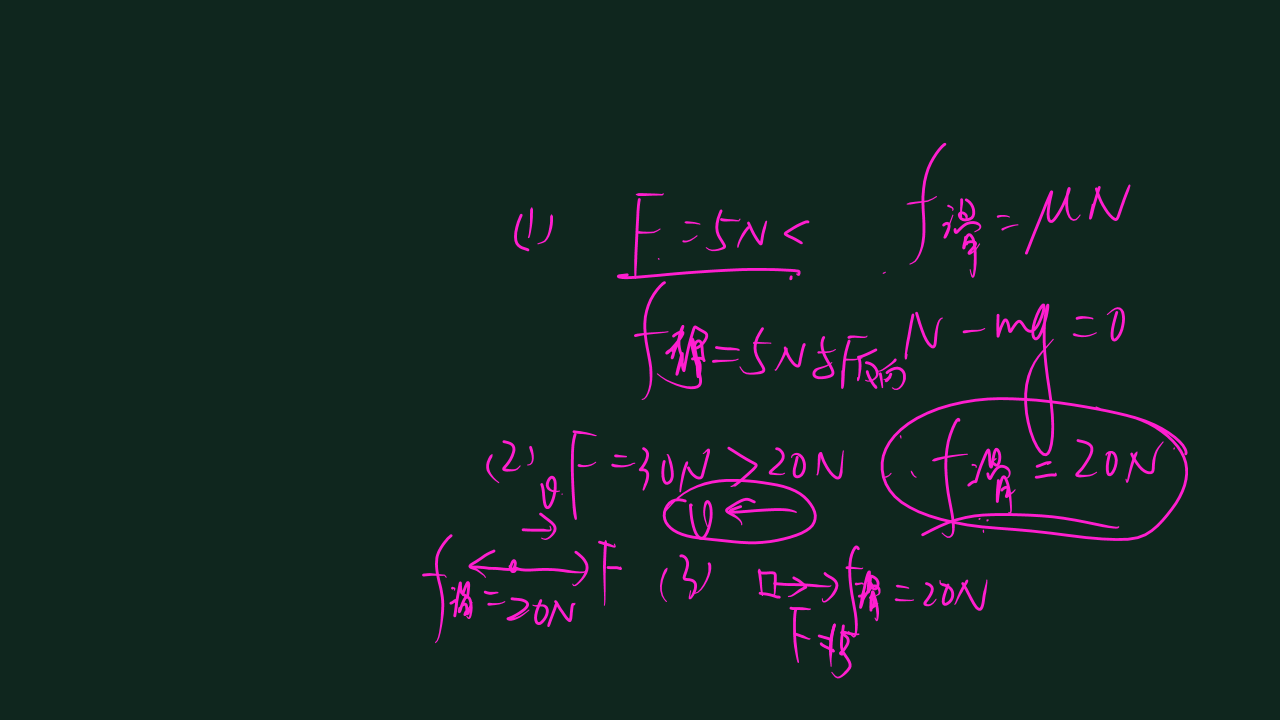 (1) F=5N< f滑=μN
f静=5N 与F反向 N-mg=0
(2) F=30N>20N f滑=20N
v
v
f滑=20N F (3) f滑=20N
F